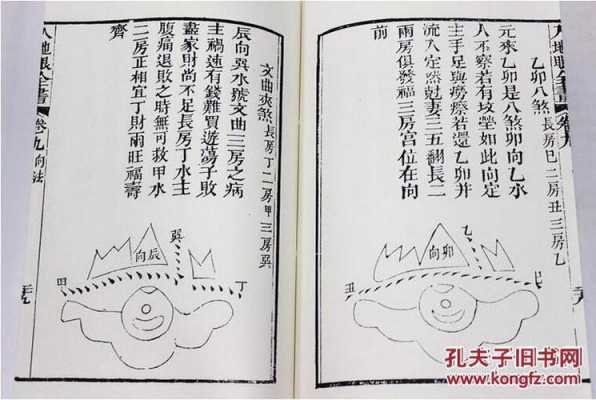 乙卯八煞 長房巳二房丑三房乙
元來乙卯是八煞卯向乙水
人不察若有坟塋如此向定
主手足與癆瘵若還乙卯并
流入定然尅妻三五翻長二
兩房俱發福三房宮位在向
前
乙
卯向
丑
地眼全書 卷九
文曲夾煞 長房丁二房甲三房巽
辰向巽水號文曲三房之病
主禍速有錢難買遊蕩子敗
盡家財尚不足長房丁水主
腹痛退敗之時無可救甲水
二房正相宜丁財兩旺福壽
齊
巽
辰向
丁
地眼全書 卷九 向法
孔夫子旧书网
www.kongfz.com